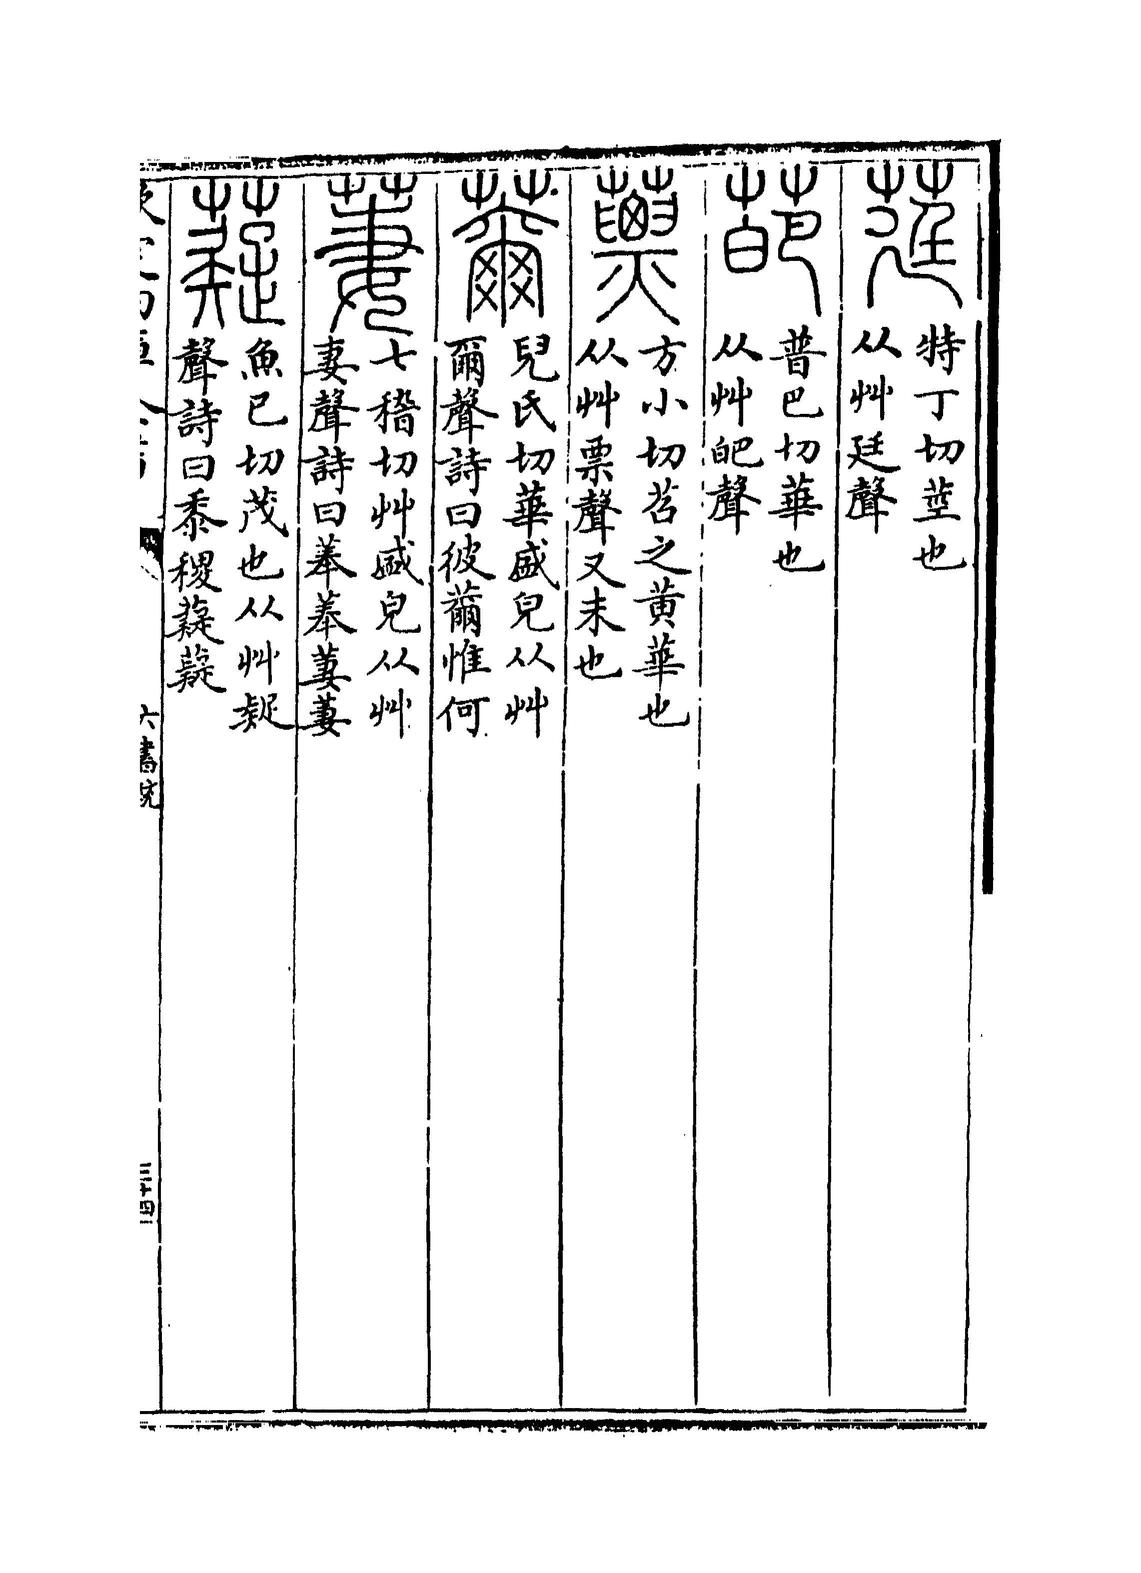 莛
特丁切莖也
从艸廷聲
葩
普巴切華也
从艸皅聲
蔈
方小切苕之黄華也
从艸票聲又末也
薾
兒氏切華盛皃从艸
爾聲詩曰彼薾惟何
萋
七稽切艸盛皃从艸
妻聲詩曰菶菶萋萋
薿
魚已切茂也从艸疑
聲詩曰黍稷薿薿
欽定四庫全書
六書統
三十四